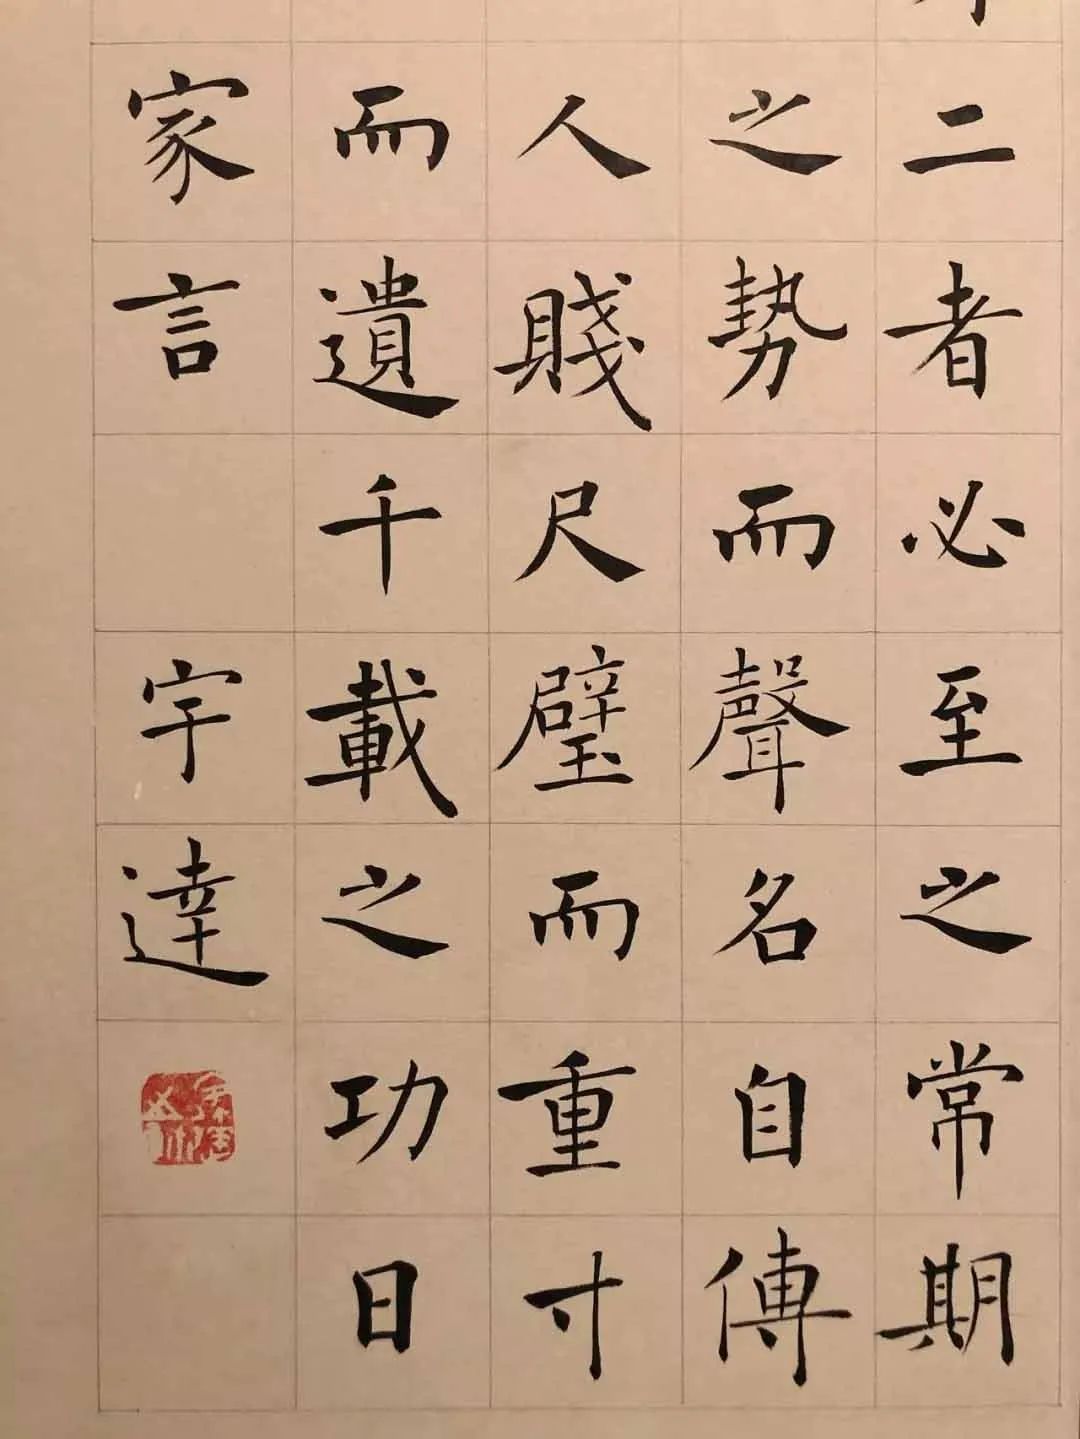 二者必至之常期
之勢而聲名自傳
人賤尺璧而重寸
而遺千載之功日
家言 宇達